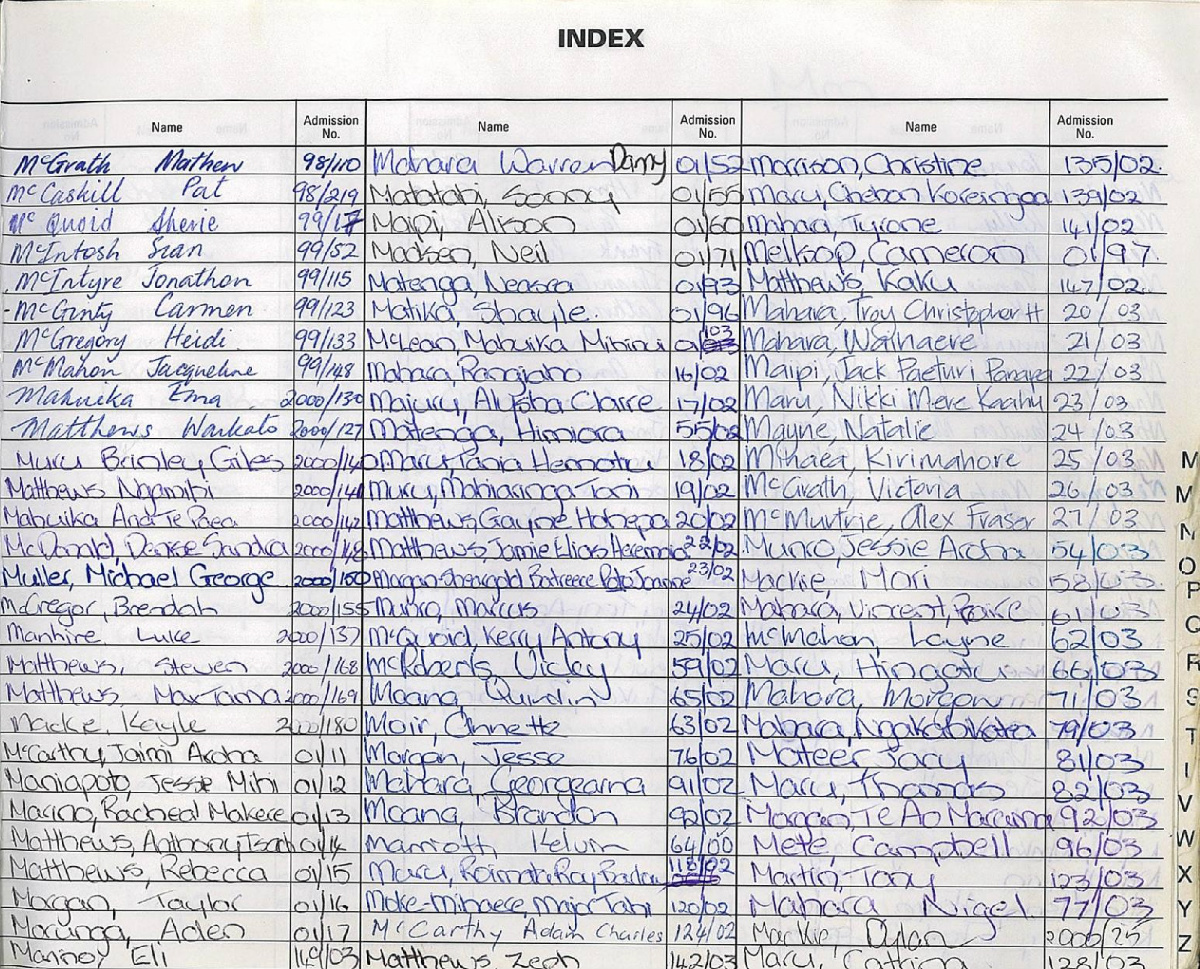 INDEX
Name Admission No. Name Admission No. Name Admission No.
McGrath Mathew 98/110 Mahara Warren Danny 01/52 Morrison, Christine 135/02
McCaskill Pat 98/219 Matatahi, Sonny 01/55 Maru, Chehon Koreingoa 139/02
McQuoid Sherie 99/17 Maipi, Alison 01/60 Mahara, Tyrone 141/02
McIntosh Sean 99/52 Madsen, Neil 01/71 Melksop, Cameron 01/97
McIntyre Jonathon 99/115 Matenga, 01/93 Matthews, Kaku 147/02
McGinty Carmen 99/123 Matika Shayle 01/96 Mahara, Troy Christopher H 20/03
McGregory Heidi 99/133 McLean, Mahuika Mihirui 01/103 Mahara, Waihaere 21/03
McMahon Jacqueline 99/148 Mahara, Rangiaho 16/02 Maipi, Jack Paeturi Panapa 22/03
Mahuika Ema 2000/130 Majuru, Alysha Clarre 17/02 Maru, Nikki Mere Kaahu 23/03
Matthews Waikato 2000/127 Matenga, Himiora 55/02 Mayne, Natalie 24/03
Muru Brinley Giles 2000/140 Maru, Tania Hematu 18/02 Mihaea, Kirimahore 25/03
Matthews Ngamihi 2000/141 Muru, Mahiaringa Toni 19/02 McGrath, Victoria 26/03
Mahuika Ana Te Paea 2000/142 Matthews, Gayne Hohepa 20/02 McMurtrie, Alex Fraser 27/03
McDonald, Denise Sandra 2000/148 Matthews, Jamie Elias Heremaia 22/02 Munro, Jessie Aroha 54/03
Muller, Michael George 2000/150 23/02 Mackie, Mari 58/03
McGregor, Brendah 2000/155 Mukra, Marcus 24/02 Mahara, Vincent, Paike 61/03
Manhire Luke 2000/137 McQuoid, Kerry Antony 25/02 McMahon, Layne 62/03
Matthews, Steven 2000/168 McRoberts, Vicley 59/02 Maru, Hingatu 66/03
Matthews, Max Tamia 2000/169 Moana, Quindin 65/02 Mahara, Morgan 71/03
Macke, Kayle 2000/180 Moir, Annette 63/02 Mahara, Ngakohikatea 79/03
McCarthy, Jaimi Aroha 01/11 Morgan, Jesse 76/02 Mateer Jacy 81/03
Maniapoto, Jesse Mihi 01/12 Mahara Georgearna 91/02 Maru, Thomas 82/03
Marino, Racheal Makere 01/13 Moana, Brandon 92/02 Morgan, Te Ao Marama 92/03
Matthews, Anthony Isach 01/14 Marriott Kelvin 64/00 Mete, Campbell 96/03
Matthews, Rebecca 01/15 Maru, Raimata Ray 118/02 Martin, Tony 123/03
Morgan, Taylor 01/16 Moke-Mihaere, Major Tahi 120/02 Mahara Nigel 77/03
Marunga, Aden 01/17 McCarthy Adam Charles 124/02 Mackie Dylan 2000/25
Marino, Eli 149/03 Matthews, Zech 142/03 Maru, Catrina 128/03
M
M
N
O
P
Q
R
S
T
I
V
W
X
Y
Z